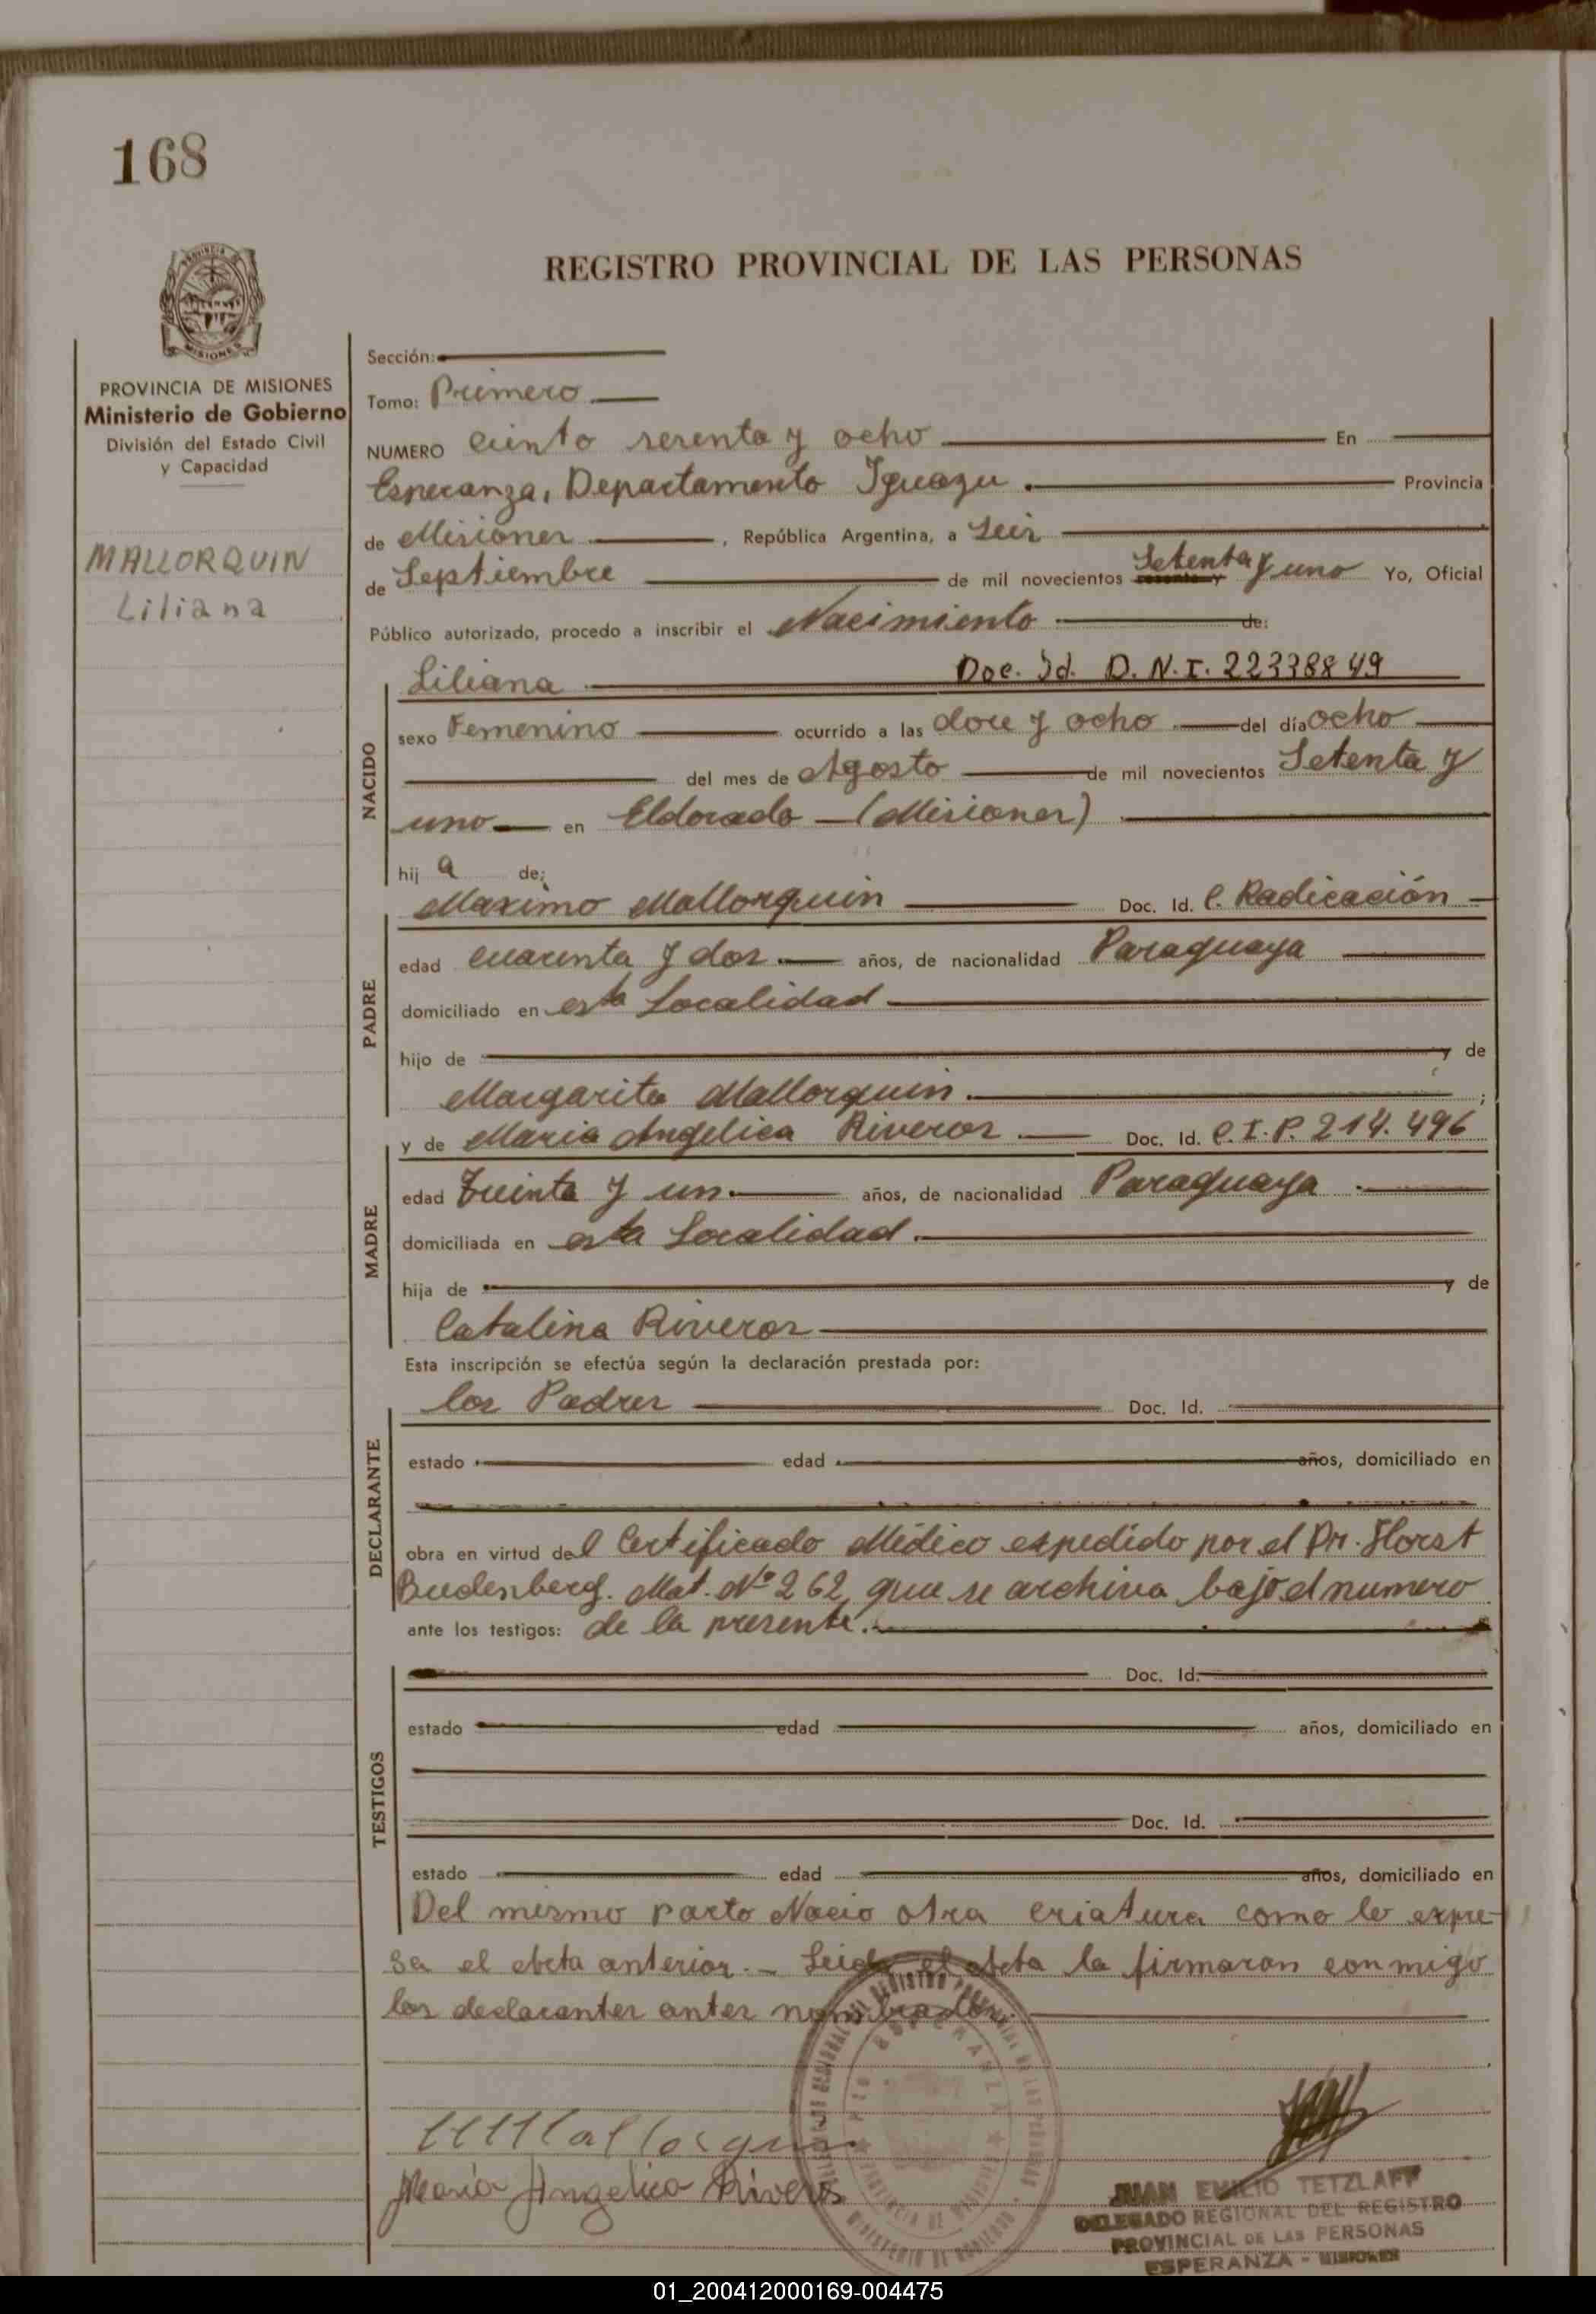 168
REGISTRO PROVINCIAL DE LAS PERSONAS
MISIONES
PROVINCIA DE MISIONES
Ministerio de Gobierno
División del Estado Civil
y Capacidad
MALLORQUIN
Liliana
Sección:
Tomo: Primero
NUMERO ciento sesenta y ocho En
Esperanza, Departamento Iguazu. Provincia
de Misiones, República Argentina, a Seis
de Septiembre de mil novecientos sesenta y Setenta y uno Yo, Oficial
Público autorizado, procedo a inscribir el Nacimiento de:
Liliana Doc. Id. D.N.I. 22338849
NACIDO
sexo Femenino ocurrido a las doce y ocho del día ocho
del mes de Agosto de mil novecientos Setenta y
uno en Eldorado (Misiones)
hij a de:
Maximo Mallorquin Doc. Id. C. Radicación
PADRE
edad cuarenta y dos años, de nacionalidad Paraguaya
domiciliado en esta Localidad
hijo de y de
Margarita Mallorquin. ;
y de Maria Angelica Riveros Doc. Id. C.I.P. 214.496
MADRE
edad Treinta y un años, de nacionalidad Paraguaya
domiciliada en esta Localidad.
hija de y de
Catalina Riveros
Esta inscripción se efectúa según la declaración prestada por:
los Padres Doc. Id.
DECLARANTE
estado edad años, domiciliado en
obra en virtud del Certificado Médico expedido por el Dr. Horst
Budenberg. Mat. Nº 262, que se archiva bajo el numero
ante los testigos: de la presente.
Doc. Id.
TESTIGOS
estado edad años, domiciliado en
Doc. Id.
estado edad años, domiciliado en
Del mismo parto Nacio otra criatura como lo expre-
sa el acta anterior.- Leida el Acta la firmaron conmigo
los declarantes antes nombrados.
Mallorquin
Maria Angelica Riveros
JUAN EMILIO TETZLAFF
DELEGADO REGIONAL DEL REGISTRO
PROVINCIAL DE LAS PERSONAS
ESPERANZA - MISIONES
01_200412000169-004475